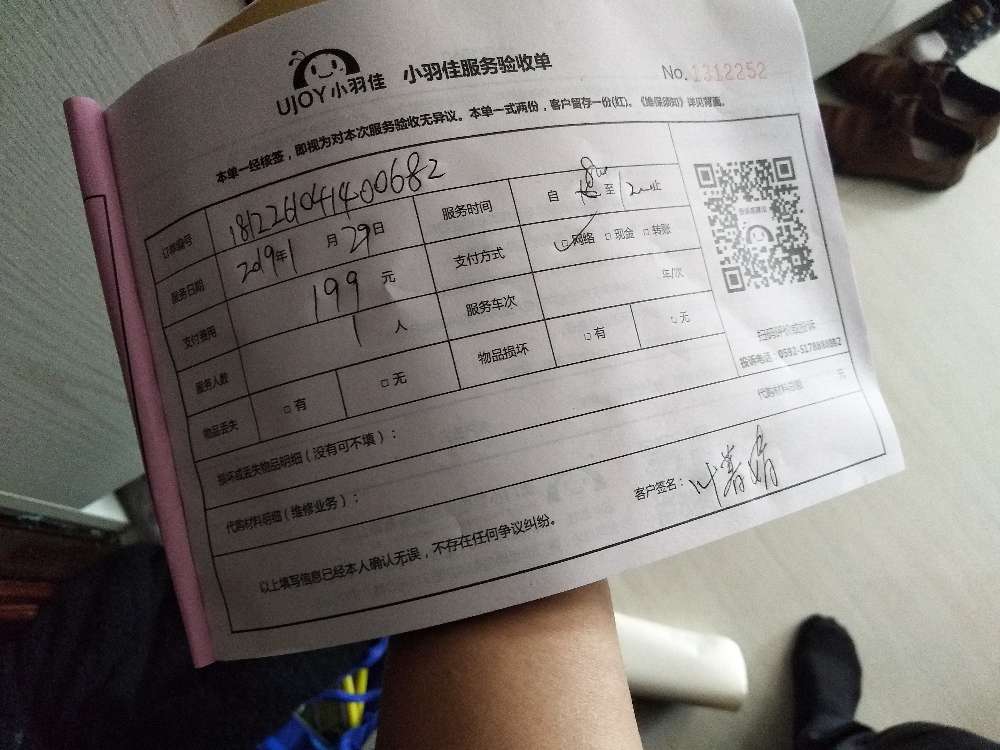 UJOY小羽佳 小羽佳服务验收单 No.1312252
本单一经接签，即视为对本次服务验收无异议。本单一式两份，客户留存一份(红)。《维保须知》详见背面。
订单编号 1812261041400682
服务日期 2019年1月29日 服务时间 自 8 至 12 止
支付费用 199 元 支付方式 □网络 □现金 □转账
服务人数 1 人 服务车次 年/次
物品丢失 □有 □无 物品损坏 □有 □无
扫码评价或投诉
投诉电话：0592-5178888882
损坏或丢失物品明细（没有可不填）：
代购材料明细（维修业务）： 代购材料总额 元
客户签名：叶
以上填写信息已经本人确认无误，不存在任何争议纠纷。